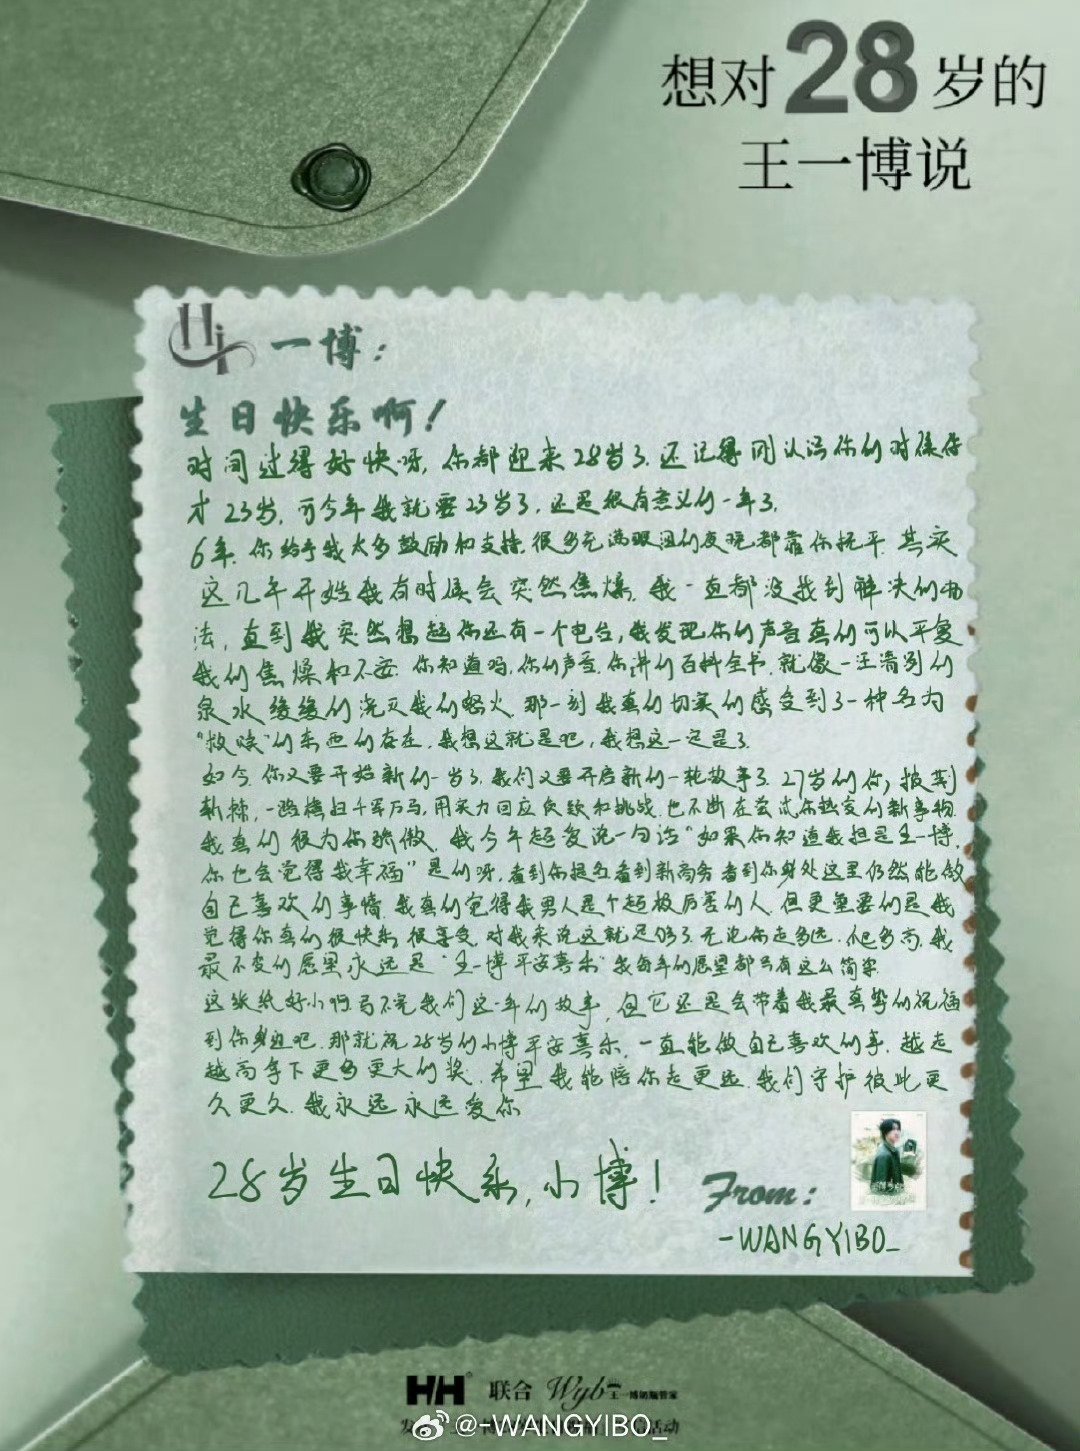 想对28岁的
王一博说
Hi 一博：
生日快乐啊！
时间过得好快呀，你都迎来28岁了.还记得刚认识你的时候你
才23岁，可今年我就要23岁了，还是很有意义的一年了.
6年.你给予我太多鼓励和支持.很多充满眼泪的夜晚都靠你抚平.其实
这几年开始我有时候会突然焦燥，我一直都没找到解决的办
法，直到我突然想起你还有一个电台，我发现你的声音真的可以平复
我的焦燥和不安.你知道吗，你的声音，你讲的百科全书，就像一汪清冽的
泉水缓缓的浇灭我的怒火.那一刻我真的切实的感受到了一种名为
“救赎”的东西的存在，我想这就是吧，我想这一定是了.
如今.你又要开始新的一岁了.我们又要开启新的一轮故事了.27岁的你，披荆
斩棘，一路横扫千军万马，用实力回应质疑和挑战.也不断在尝试你热爱的新事物.
我真的很为你骄傲.我今年超爱说一句话“如果你知道我担是王一博，
你也会觉得我幸福”是的呀，看到你提名看到新商务看到你身处这里仍然能做
自己喜欢的事情.我真的觉得我男人是个超级厉害的人.但更重要的是我
觉得你真的很快乐，很享受.对我来说这就足够了.无论你走多远.多高，我
最不变的愿望永远是“王一博平安喜乐”我每年的愿望都只有这么简单.
这张纸好小啊写不完我们这一年的故事，但它还是会带着我最真挚的祝福
到你身边吧.那就祝28岁的小博平安喜乐，一直能做自己喜欢的事.越走
越高拿下更多更大的奖.希望我能陪你走更远.我们守护彼此更
久更久.我永远永远爱你
28岁生日快乐，小博！
From：
-WANGYIBO_
HH 联合 Wyb 王一博奶瓶管家
@-WANGYIBO_ 活动